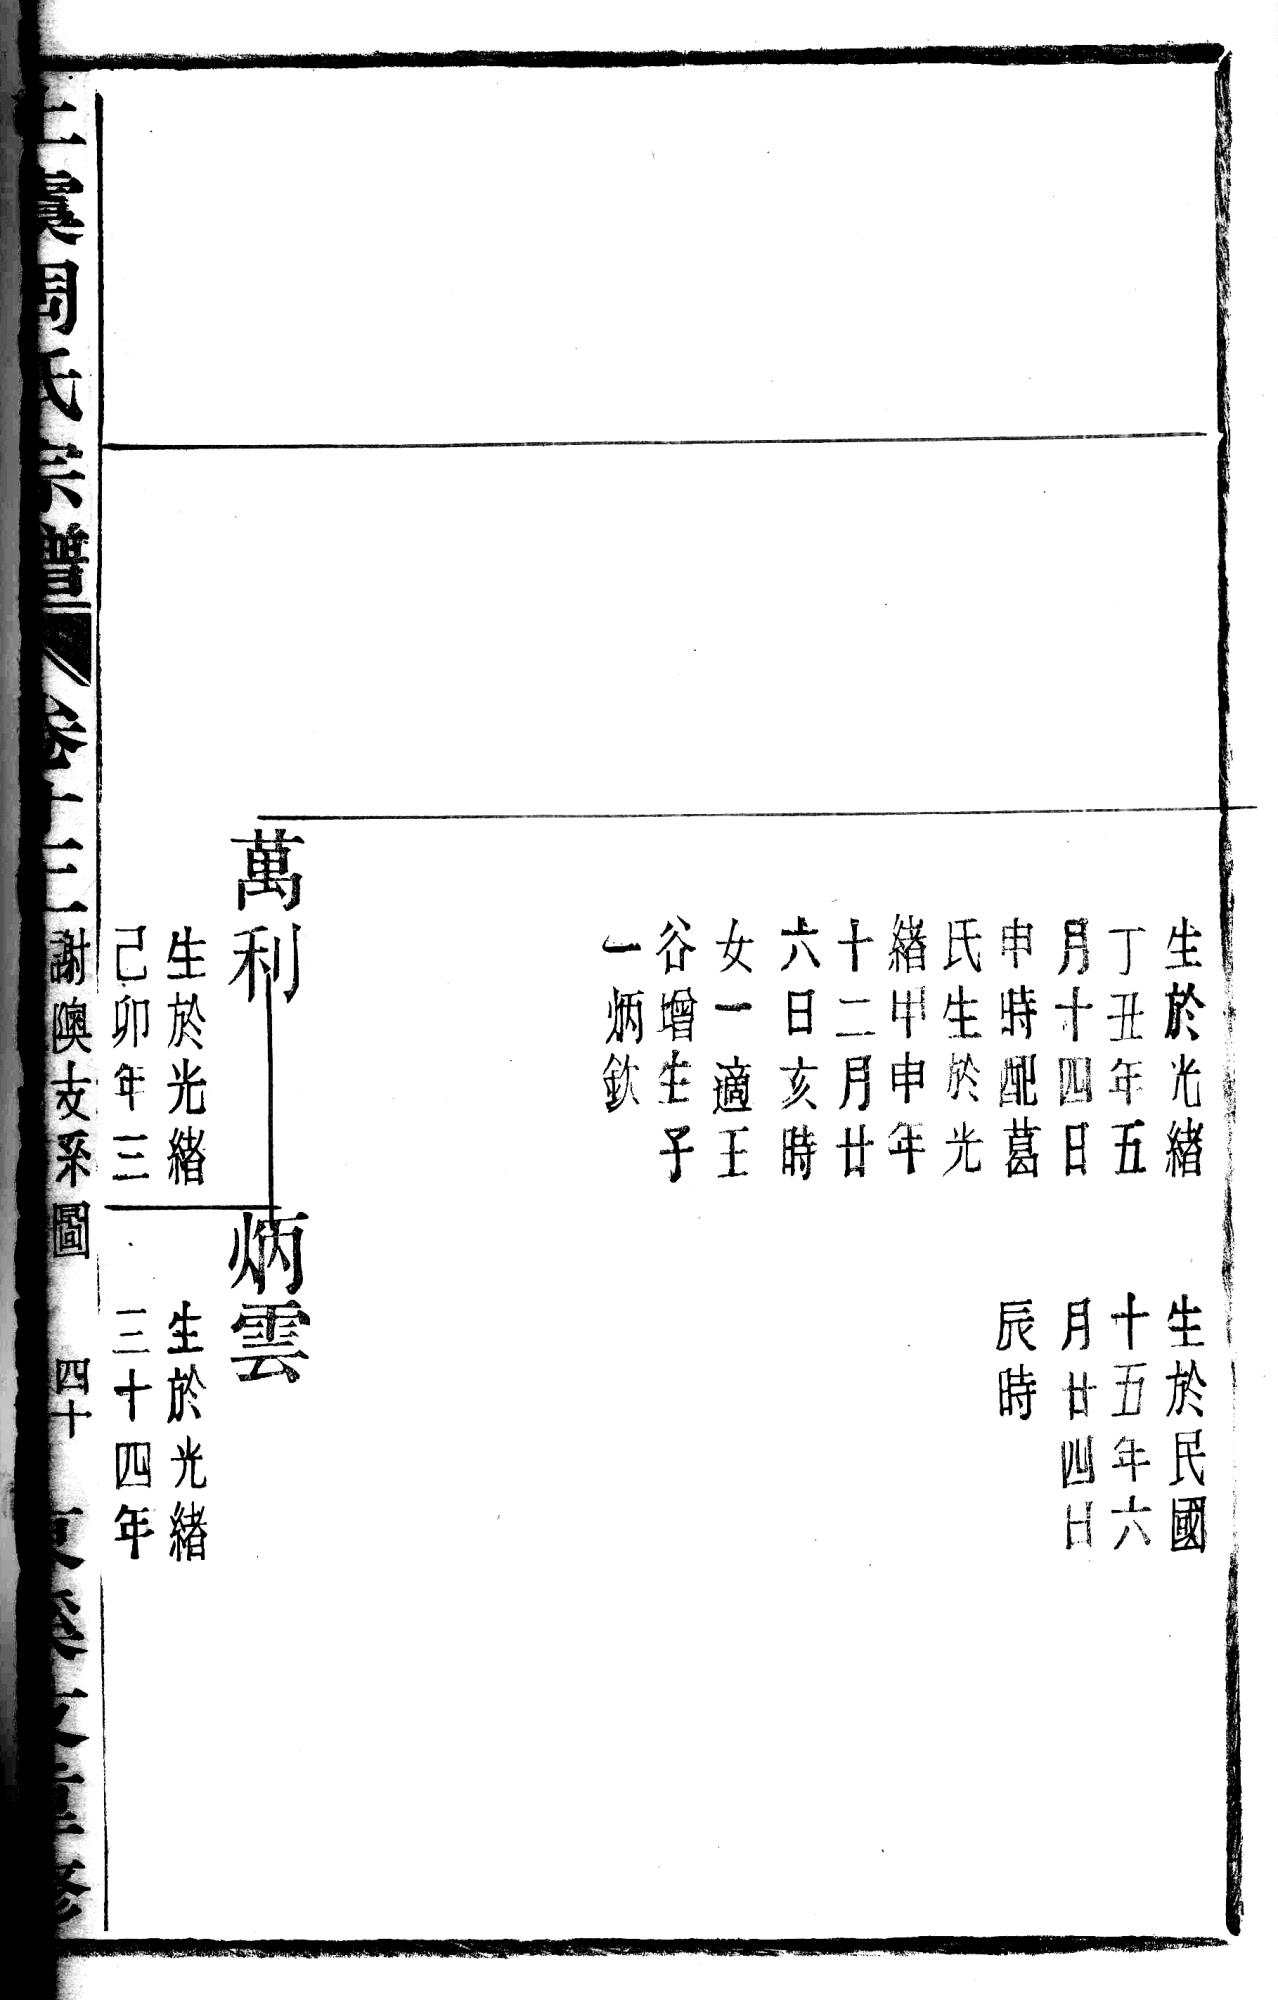 生於光緒
丁丑年五
月十四日
申時配葛
氏生於光
緒甲申年
十二月廿
六日亥時
女一適王
谷增生子
一炳欽
生於民國
十五年六
月廿四日
辰時
萬利
生於光緒
己卯年三
炳雲
生於光緒
三十四年
上虞周氏宗譜
卷十三
謝隩支系圖
四十